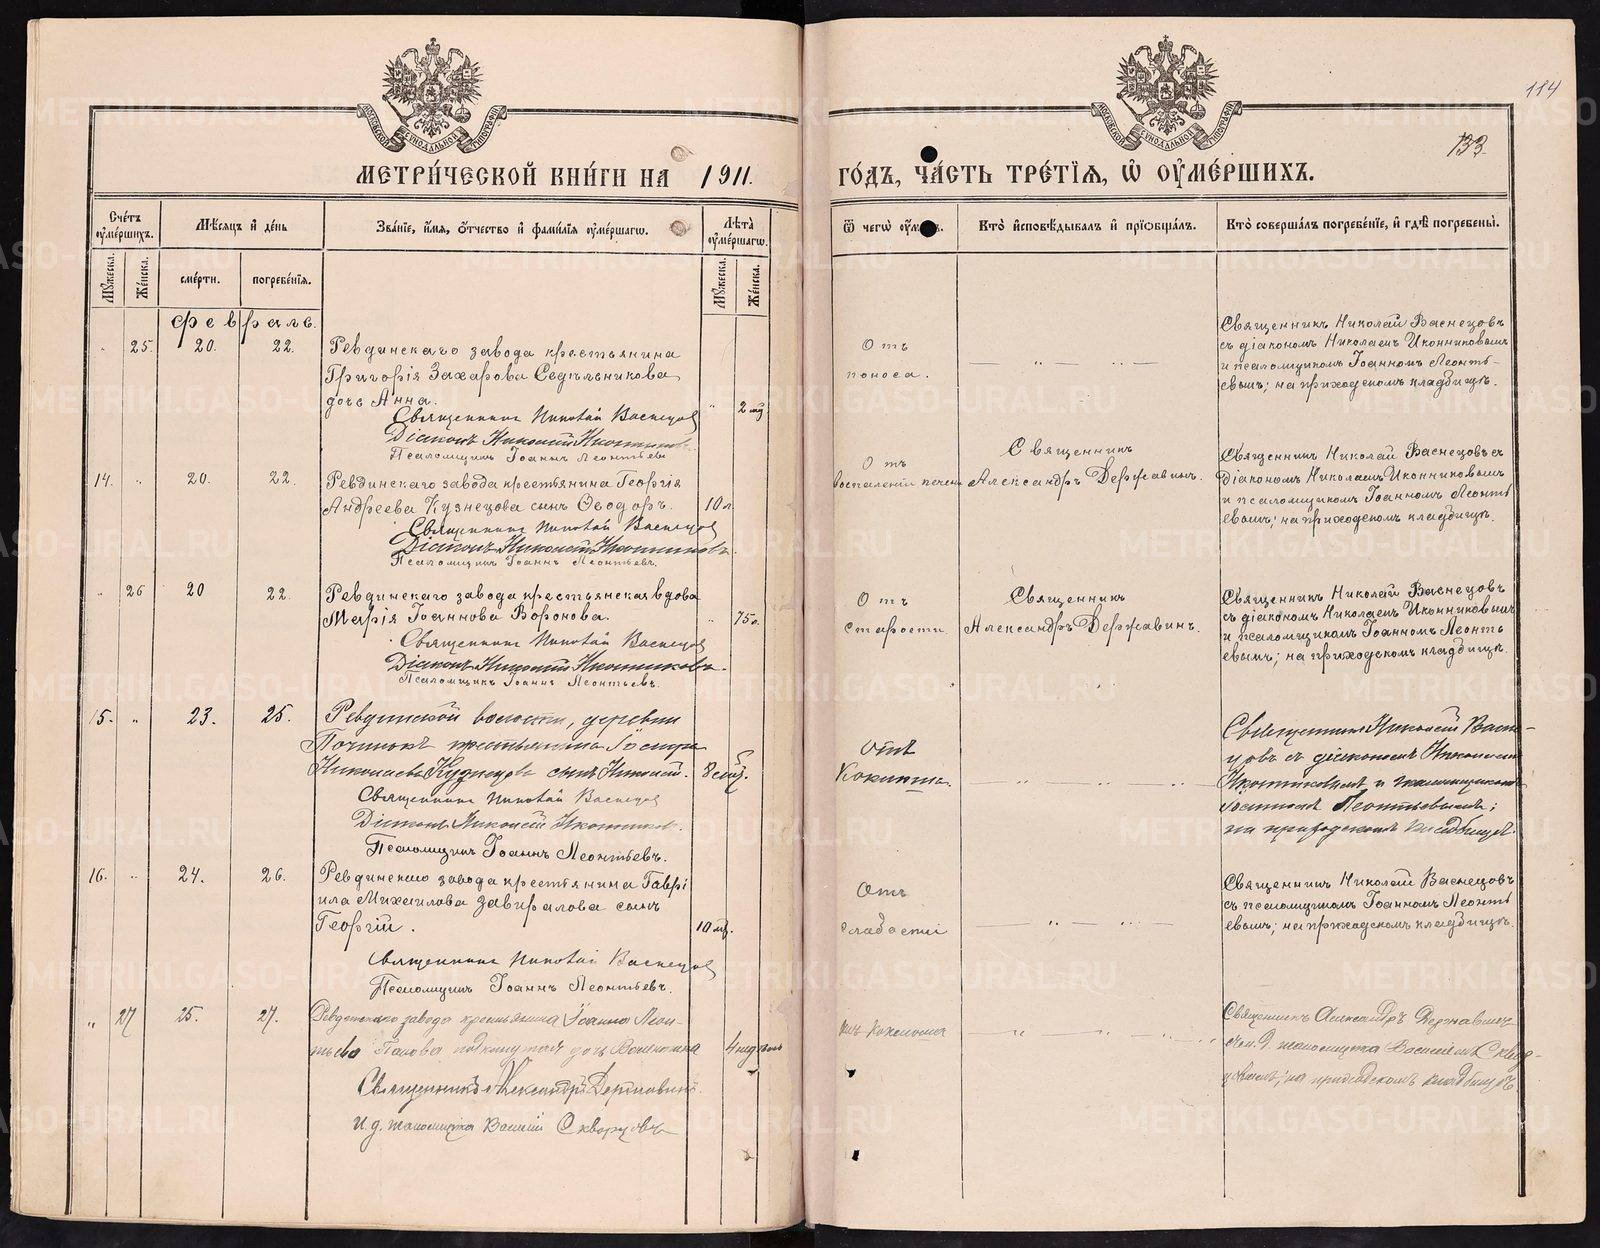 114
133.
МОСКОВСКОЙ СѴНОДАЛЬНОЙ ТИПОГРАФІИ
МОСКОВСКОЙ СѴНОДАЛЬНОЙ ТИПОГРАФІИ
МЕТРИ́ЧЕСКОЙ КНИ́ГИ НА 1911.
ГО́ДЪ, ЧА́СТЬ ТРЕ́ТІѦ, Ѡ҆ ОУ҆МЕ́РШИХЪ.
Сче́тъ оу҆ме́ршихъ.
Мѣ́сѧцъ и҆ де́нь
Зва́нїе, и҆́мѧ, ѻ҆́тчество и҆ фами́лїѧ оу҆ме́ршагѡ.
Лѣ́та оу҆ме́ршагѡ.
Ѿ чегѡ̀
Кто̀ и҆сповѣ́дывалъ и҆ прїѡбща́лъ.
Кто̀ соверша́лъ погребе́нїе, и҆ гдѣ̀ погребены̀.
Мꙋ́жеска.
Же́нска.
сме́рти.
погребе́нїѧ.
Мꙋ́жеска.
Же́нска.
февраль.
25. 20. 22.
Ревдинскаго завода крестьянина
Григорія Захарова Седѣльникова
дочь Анна.
2 мц
Священникъ Николай Васнецов
Діаконъ Николай Иконников
Псаломщикъ Іоаннъ Леонтьевъ
Отъ
поноса.
Священникъ Николай Васнецовъ
съ діакономъ Николаемъ Иконниковымъ
и псаломщикомъ Іоанномъ Леонть-
евымъ; на приходскомъ кладбищѣ.
14. " 20. 22.
Ревдинскаго завода крестьянина Георгія
Андреева Кузнецова сынъ Ѳеодоръ.
10 л.
Священникъ Николай Васнецов
Діаконъ Николай Иконниковъ.
Псаломщикъ Іоаннъ Леонтьевъ.
Отъ
воспаленія печени
Священникъ
Александръ Державинъ.
Священникъ Николай Васнецовъ съ
діакономъ Николаемъ Иконниковымъ
и псаломщикомъ Іоанномъ Леонть
евымъ; на приходскомъ кладбищѣ.
" 26 20 22.
Ревдинскаго завода крестьянская вдова
Марія Іоаннова Воронова.
" 75 л.
Священникъ Николай Васнецов
Діаконъ Николай Иконниковъ.
Псаломщикъ Іоаннъ Леонтьевъ.
Отъ
старости
Священникъ
Александръ Державинъ.
Священникъ Николай Васнецовъ
съ діакономъ Николаемъ Иконниковымъ
и псаломщикомъ Іоанномъ Леонть
евымъ; на приходскомъ кладбищѣ.
15. " 23. 25.
Ревдинской волости, деревни
Починокъ крестьянина
Николаева Кузнецова сынъ Николай.
8 мц.
Священникъ Николай Васнецов
Діаконъ Николай Иконников.
Псаломщикъ Іоаннъ Леонтьевъ.
Отъ
Коклюша.
Священникъ Николай Васне-
цовъ съ діакономъ Николаемъ
Иконниковымъ и псаломщикомъ
Іоанномъ Леонтьевымъ;
на приходскомъ кладбищѣ.
16. " 24. 26.
Ревдинскаго завода крестьянина Гаврі
ила Михаилова Завиралова сынъ
Георгій.
10 мц.
Священникъ Николай Васнецов
Псаломщикъ Іоаннъ Леонтьевъ.
Отъ
слабости
Священникъ Николай Васнецовъ
съ псаломщикомъ Іоанномъ Леонть
евымъ; на приходскомъ кладбищѣ.
" 27 25. 27.
Ревдинскаго завода крестьянина Іоанна Леон-
тьева Попова дочь
4
Священникъ Александръ Державинъ.
И.д. псаломщика Василій Скворцовъ
отъ коклюша
Священникъ Александръ Державинъ
съ и.д. псаломщика Василіемъ Сквор-
цовымъ; на приходскомъ кладбищѣ
METRIKI.GASO-URAL.RU